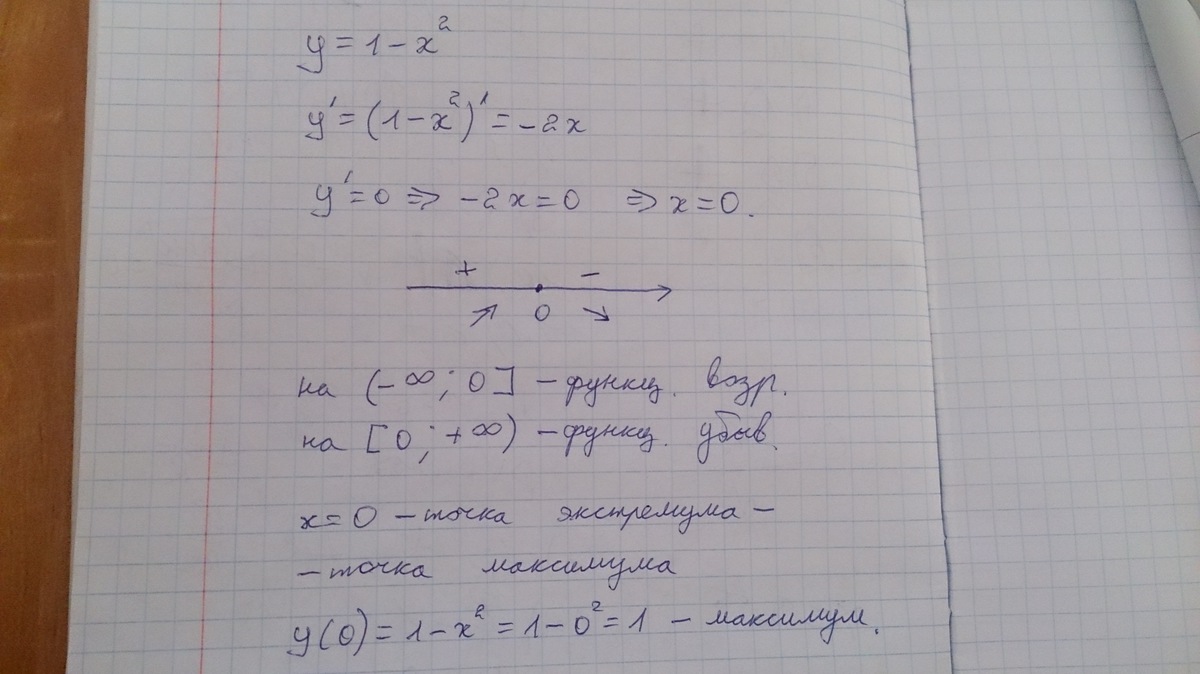 y = 1 - x²
y' = (1 - x²)' = -2x
y' = 0 ⇒ -2x = 0 ⇒ x = 0.
+ -
↗ 0 ↘
на (-∞; 0] - функц. возр.
на [0; +∞) - функц. убыв.
x = 0 - точка экстремума -
- точка максимума
y(0) = 1 - x² = 1 - 0² = 1 - максимум.